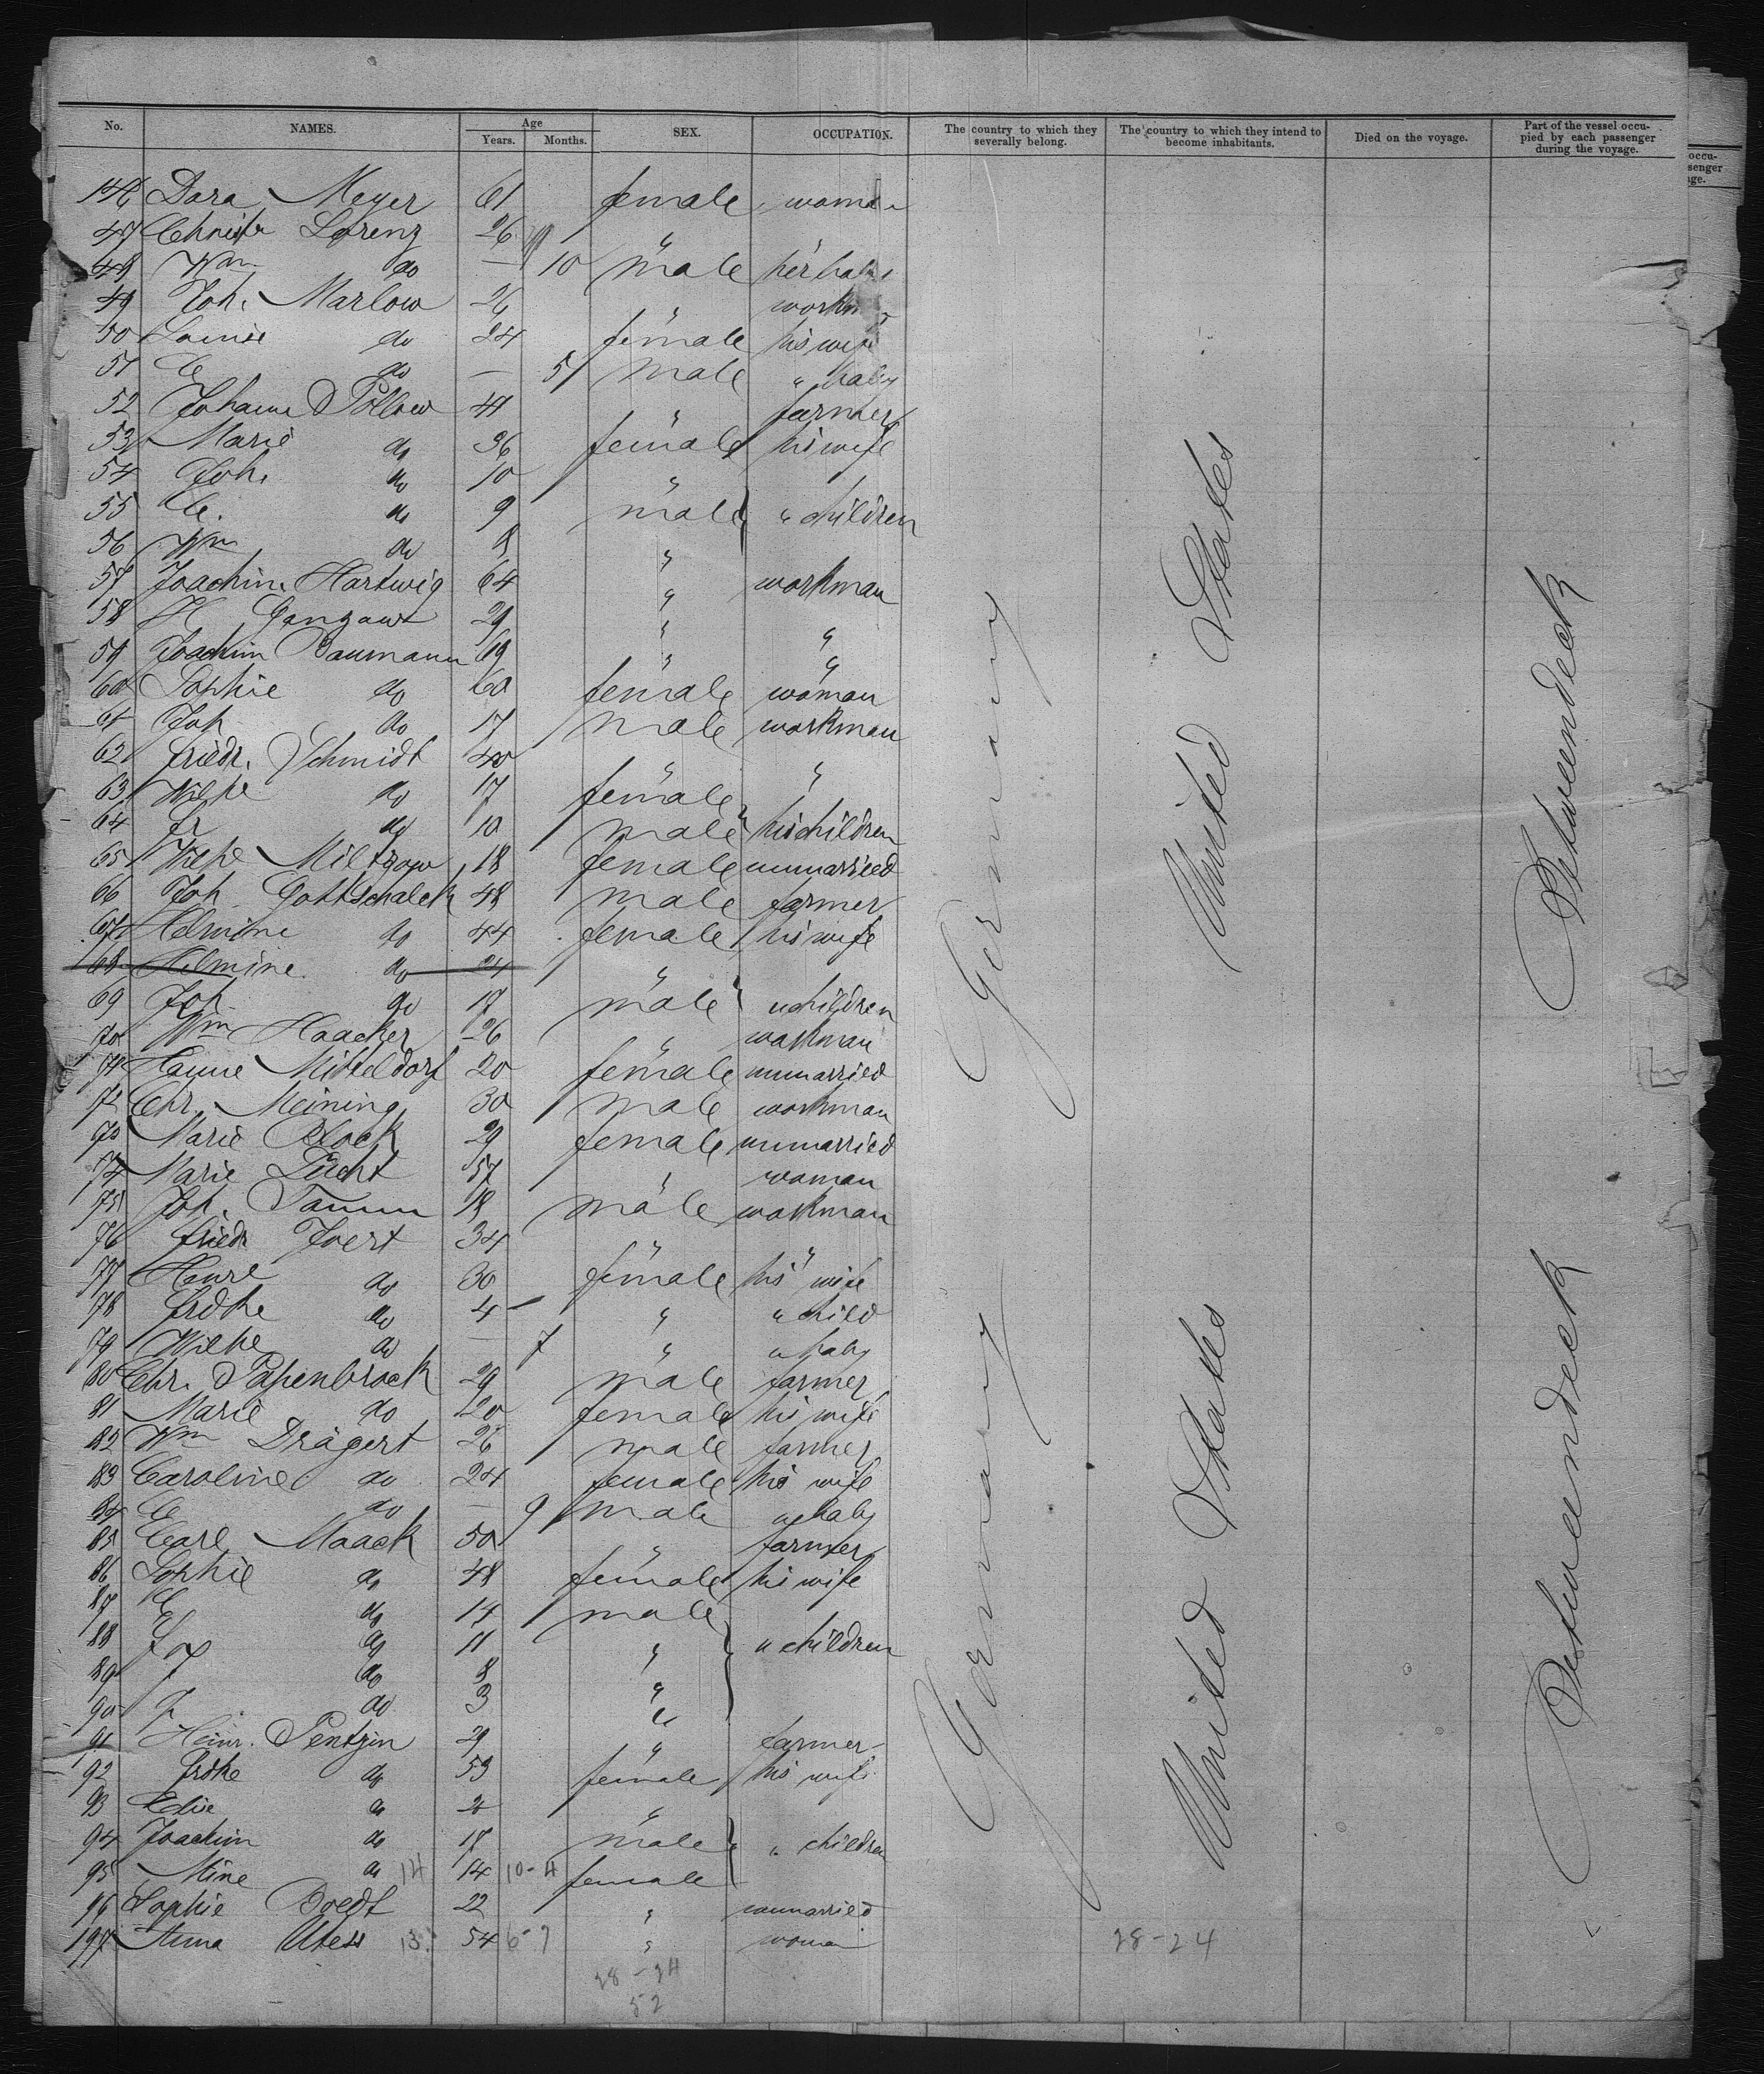 No. NAMES. Age Years. Months. SEX. OCCUPATION. The country to which they severally belong. The country to which they intend to become inhabitants. Died on the voyage. Part of the vessel occupied by each passenger during the voyage.
146 Dora Meyer 61 female woman
47 Lorenz 26 "
48 Wm do — 10 male her baby
49 Joh. Marlow 26 "
50 Louise do 24 female his wife
51 C do — 5 male " baby
52 Johann Pollow 41 " farmer
53 Marie do 36 female his wife
54 Joh. do 10 "
55 C. do 9 male " children
56 Wm do 8 "
57 Joachim Hartwig 64 " workman
58 H 29 " "
59 Joachim Baumann 69 " "
60 Sophie do 60 female woman
61 Joh do 17 male workman
62 Friedr. Schmidt 40 " "
63 Wilhe do 17 female
64 Fr do 10 male his children
65 Wilhe Miltzow 18 female unmarried
66 Joh Gottschalck 48 male farmer
67 Helmine do 44 female his wife
68 Helmine do 24 "
69 Joh do 17 male " children
70 Wm Haacker 26 " workman
71 Hanne Mitteldorf 20 female unmarried
72 Chr. Meining 30 male workman
73 Marie Block 29 female unmarried
74 Marie 57 " woman
75 Joh. Tamm 18 male workman
76 Friedr 34 " "
77 do 30 female his wife
78 Frdke do 4 — " " child
79 Wilhe do — 7 " " baby
80 Chr. Papenbrock 29 male farmer
81 Marie do 20 female his wife
82 Wm Drägert 26 male farmer
83 Caroline do 24 female his wife
84 C do — 9 male " baby
85 Carl Maack 50 " farmer
86 Sophie do 48 female his wife
87 C do 14 male
88 do 11 " " children
89 J do 8 "
90 J. do 3 "
91 Heinr. Pentzin 29 " farmer
92 Frdke do 53 female his wife
93 do "
94 Joachim do 17 male " children
95 Mine do 14 14 10-4 female
96 Sophie 22 " unmarried
197 Anna 13 54 6-7 " woman
28-24
28-24
52
Germany
United States
Betweendeck
Germany
United States
Betweendeck